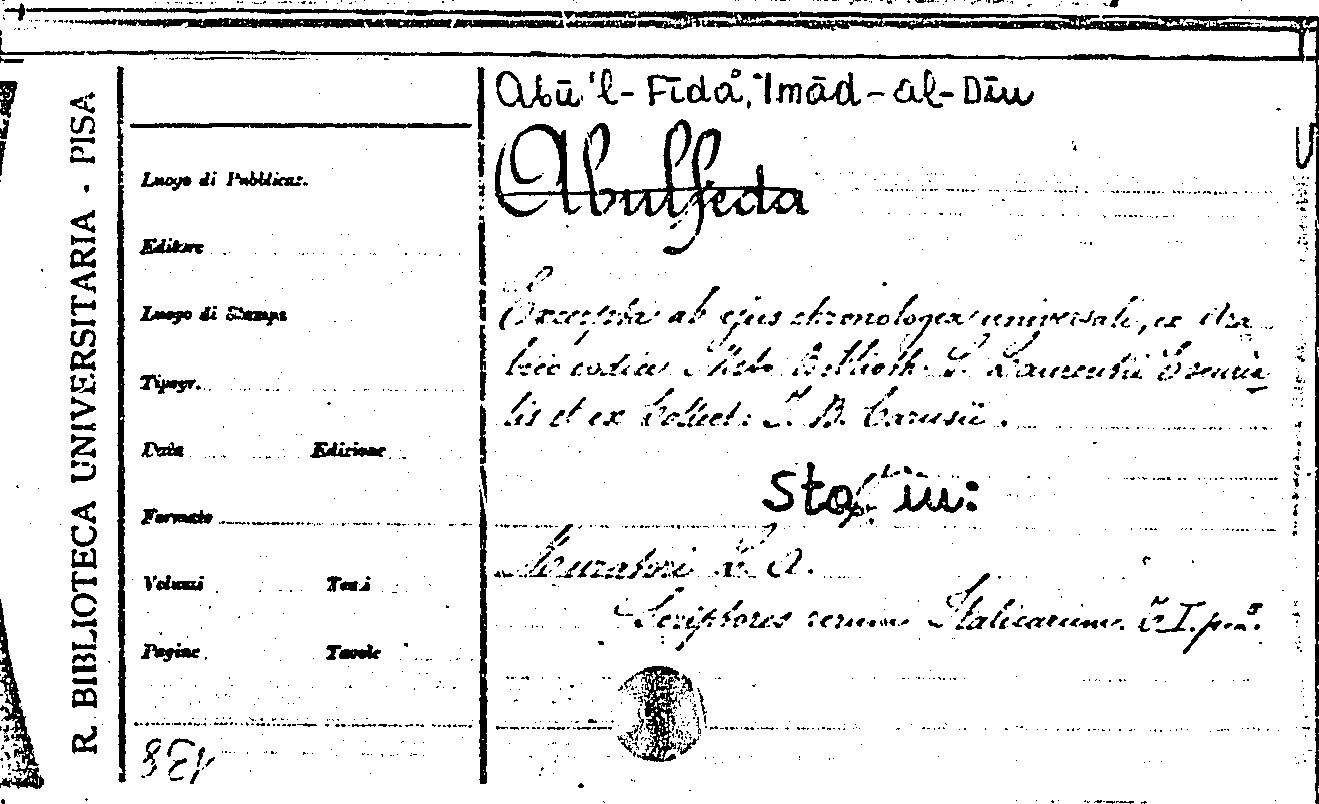 R. BIBLIOTECA UNIVERSITARIA - PISA
Luogo di Pubblicaz.
Editore
Luogo di Stampa
Tipogr.
Data Edizione
Formato
Volumi Tomi
Pagine Tavole
Abū 'l-Fidā', 'Imād-al-Dīn
Abulfeda
Excerpta ab ejus chronologea universali, ex Ara
bico codice Biblioth. S. Laurentii
lis et ex Collect: J. B. Carusii.
Sta in:
Muratori L. A.
Scriptores rerum Italicarum. T. I. p.